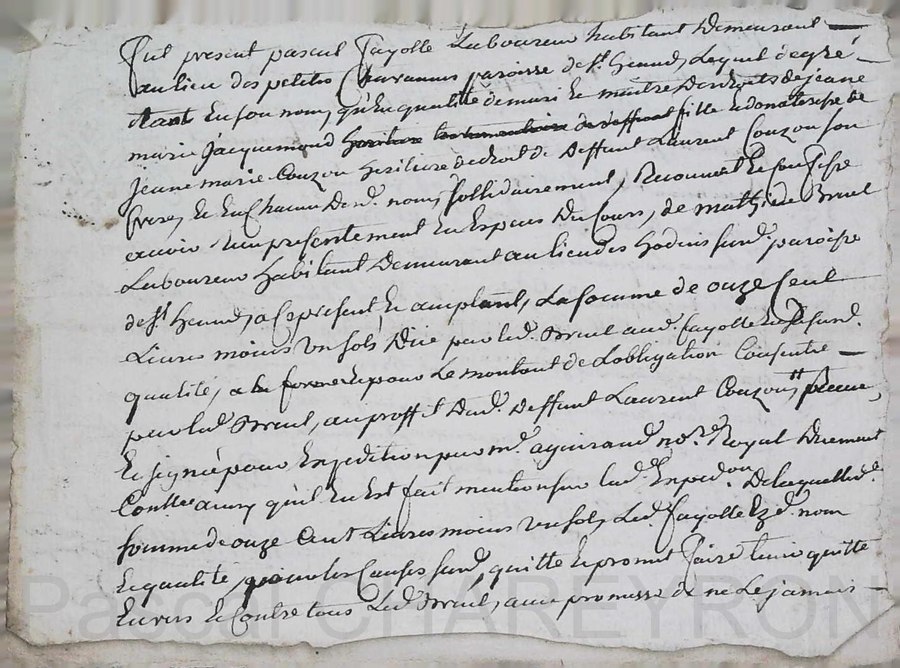 Fut present pascal Fayolle Laboureur habitant Demeurant
au lieu des petites Chavannes paroisse de st heand, Lequel degré
tant En son nom, qu'En qualité de mari Et maitre Des droits de jeane
marie jacquemond fille Et donateresse de
jeane marie Couzon heritiere de droit de Deffunt Laurent Couzon son
frere, Et En Chacun Desd. noms sollidairement, Reconnoit Et Confesse
avoir Eu presentement En Especes Du Cours, de mathie Breul
Laboureur habitant Demeurant au lieu des hodins surd. paroisse
de st heand, a Ce present Et acceptant, La somme de onze Cent
Livres moins un sols, Due par led. Breul aud. fayolle En
qualité, pour Le montant de Lobligation Consentie
par led. Breul, au proffit Dud. Deffunt Laurent Couzon,
Et signée pour Expedition par me. aguiraud nore. Royal Duement
Contlee ainsy qu'il En Est fait mention sur lad. Expedon De laquelle d.
somme de onze Cent Livres moins un sol, Led. fayolle Ezd. nom
Et qualité, pour les Causes surd., quitte Et promet faire tenir quitte
Envers Et Contre tous Led. Breul, avec promesse de ne Le jamais
Pascal CHAREYRON